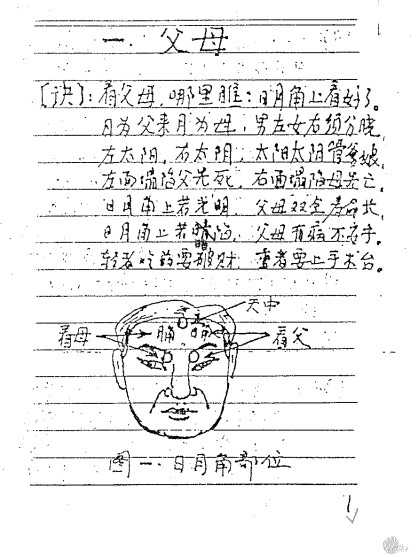 一.父母
[诀]:看父母,哪里瞧:日月角上看好了。
日为父来月为母,男左女右须分晓,
左太阳,右太阴,太阳太阴管爹娘,
左面塌陷父先死,右面塌陷母先亡。
日月角上若光明,父母双全寿
日月角上若暗陷,父母有病不
轻者吃药要破财,重者要上手术台。
天中
看母
月角
日角
看父
图一.日月角部位
1